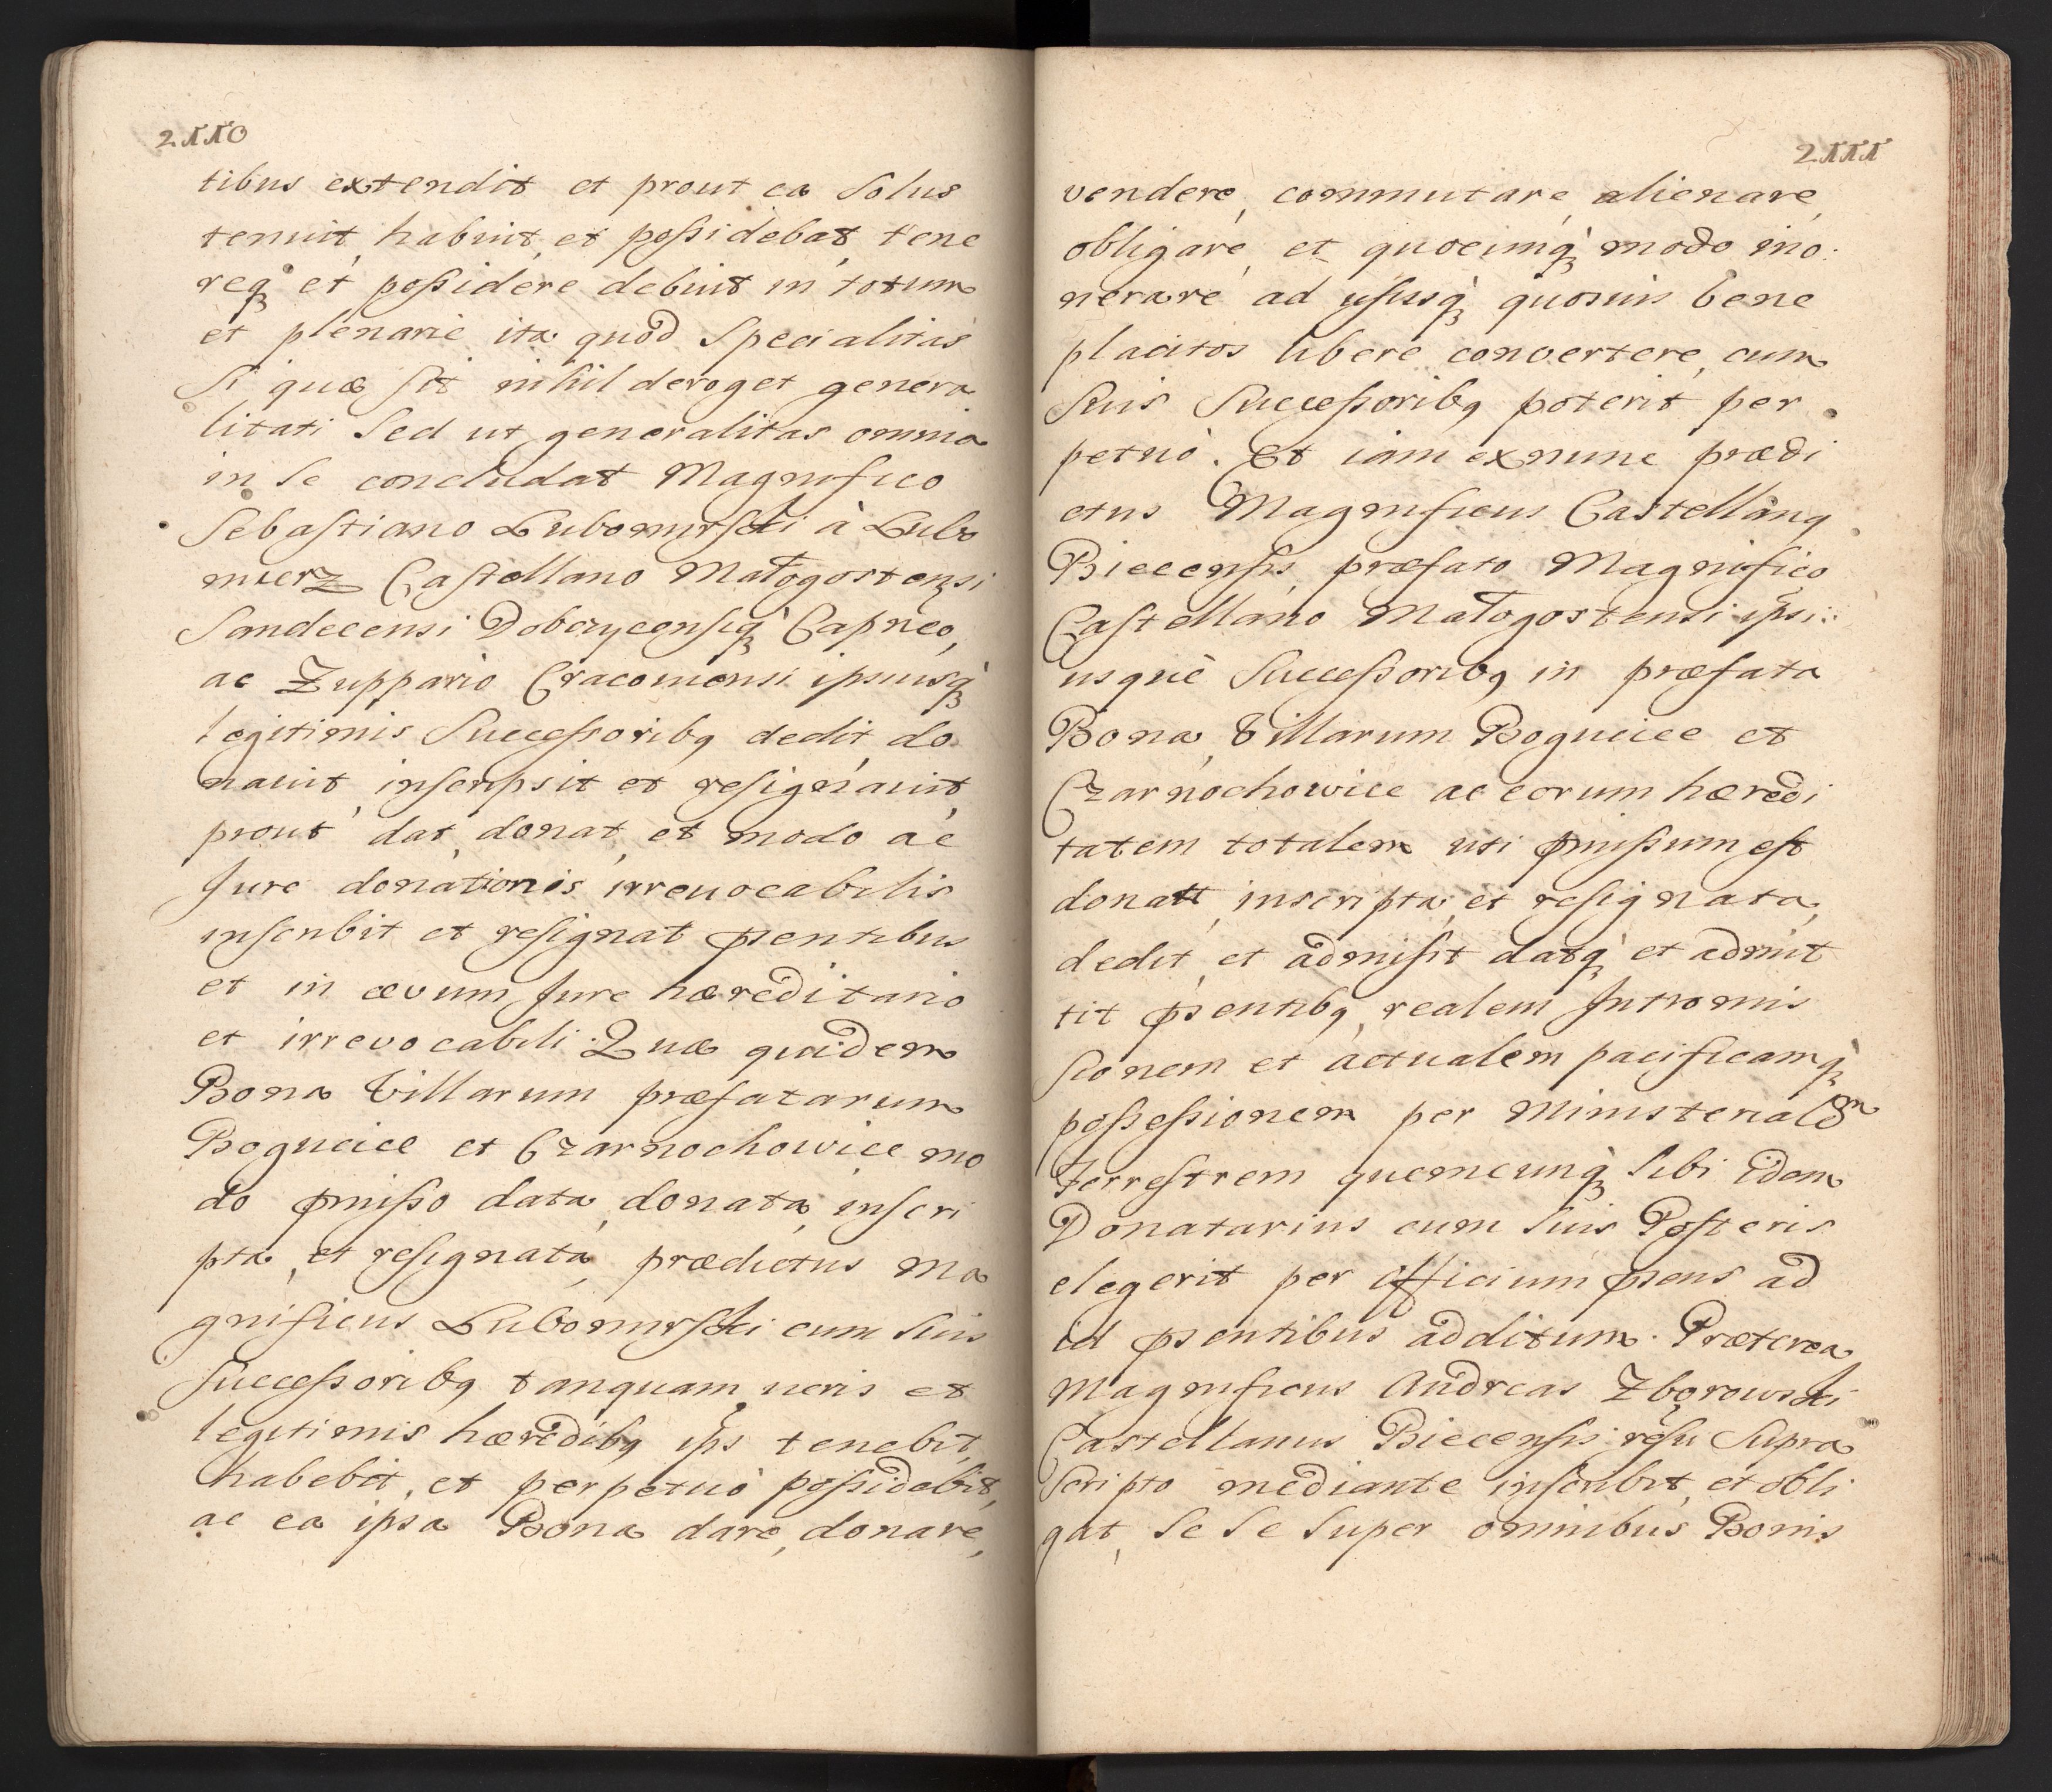 2110
tibus extendit et prout ea Solus
tenuit, habuit, et possidebat, tene
reqꝫ et possidere debuit in totum
et plenarie ita quòd Specialitas
Si quæ sit nihil deroget genera
litati Sed ut generalitas omnia
in Se concludat Magnifico
Sebastiano Lubomirski à Lubo
mierz Castellano Małogostensi
Sandecensi Dobczycensiqꝫ Capneo,
ac Zuppario Cracoviensi ipsiusqꝫ
legitimis Successoribꝯ dedit do
nauit, inscripsit et resignauit,
prout dat, donat, et modo ac
Jure donationis irreuocabilis
inscribit et resignat p̄sentibus
et in ævum Jure hæreditario
et irrevocabili. Quæ quidem
Bona Villarum præfatarum
Bogucice et Czarnochowice mo
do p̄misso data, donata, inscri
pta, et resignata, prædictus Ma
gnificus Lubomirski cum Suis
Successoribꝯ tanquam ueris et
legitimis hæredibꝯ ips tenebit,
habebit, et perpetuò possidebit,
ac ea ipsa Bona dare, donare,
2111
vendere, commutare, alienare,
obligare, et quocunqꝫ modo ino
nerare ad ususqꝫ quosuis bene
placitos libere convertere, cum
Suis Successoribꝯ poterit per
petuò. Et iam exnunc prædi
ctus Magnificus Castellanꝯ
Biecensis, præfato Magnifico
Castellano Małogostensi ipsi:
usquè Successoribꝯ in præfata
Bona, Villarum Bogucice et
Czarnochowice ac eorum hæredi
tatem totalem uti p̄missum est
donatt, inscripta, et resignata,
dedit, et admisit datqꝫ et admit
tit p̄sentibꝯ, realem Intromis
sionem et actualem pacificamqꝫ
possessionem per Ministerialem
Terrestrem quemcunqꝫ Sibi idem
Donatarius cum Suis Posteris
elegerit per Officium p̄sens ad
id p̄sentibus additum. Præterea
Magnificus Andreas Zborowski
Castellanus Biecensis resu Supra
Scripto mediante inscribit, et obli
gat, Se Se Super omnibus Bonis